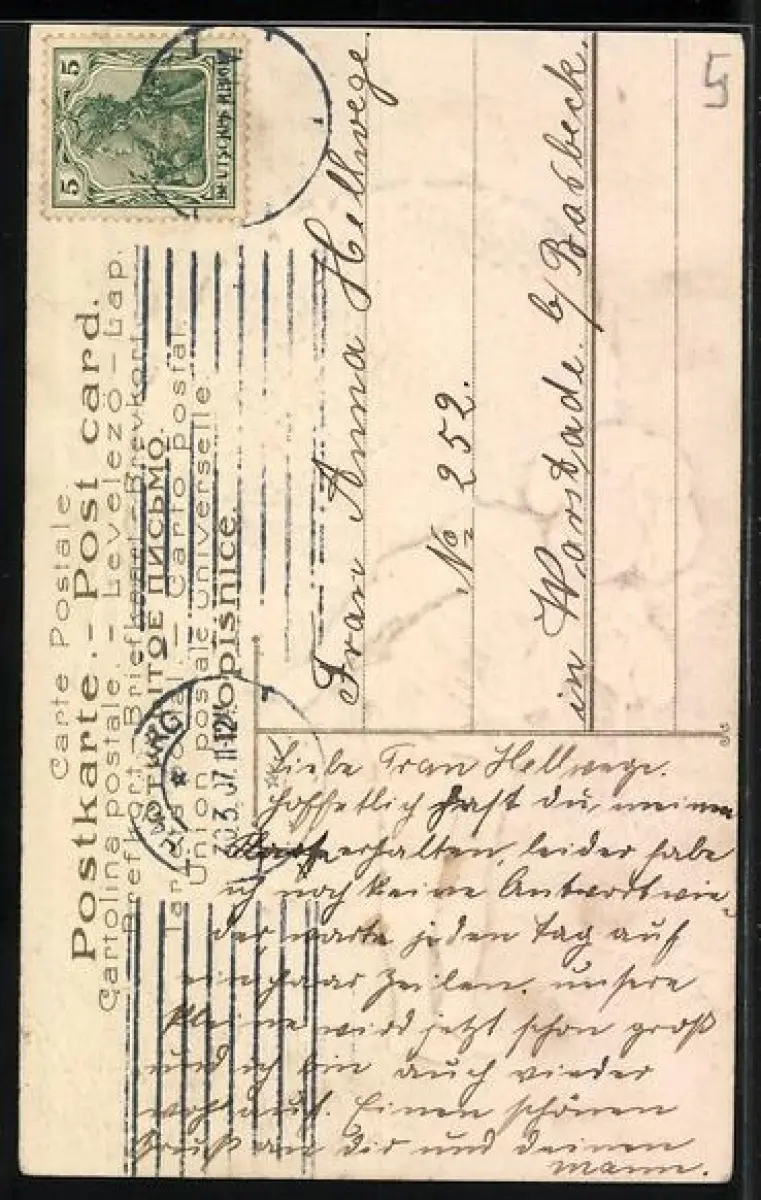 Carte Postale
Postkarte. – Post card.
Cartolina postale. – Levelező-Lap.
Briefkaart – Brevkort.
ОТКРЫТОЕ ПИСЬМО.
postal. – Carto postal.
Union postale universelle
Dopisnice.
5 5
HAMBURG
30.3.07 11-12
Frau Anna Hellwege.
No 252.
in Warstade. b/ Basbeck.
5
Liebe Frau Hellwege.
hoffetlich hast du, meinen
erhalten, leider habe
ich noch keine Antwort wie-
der, warte jeden Tag auf
ein paar Zeilen. unsere
kleine wird jetzt schon groß
und ich bin auch wieder
wohl auf. Einen schönen
Gruß an dir und deinen
mann.